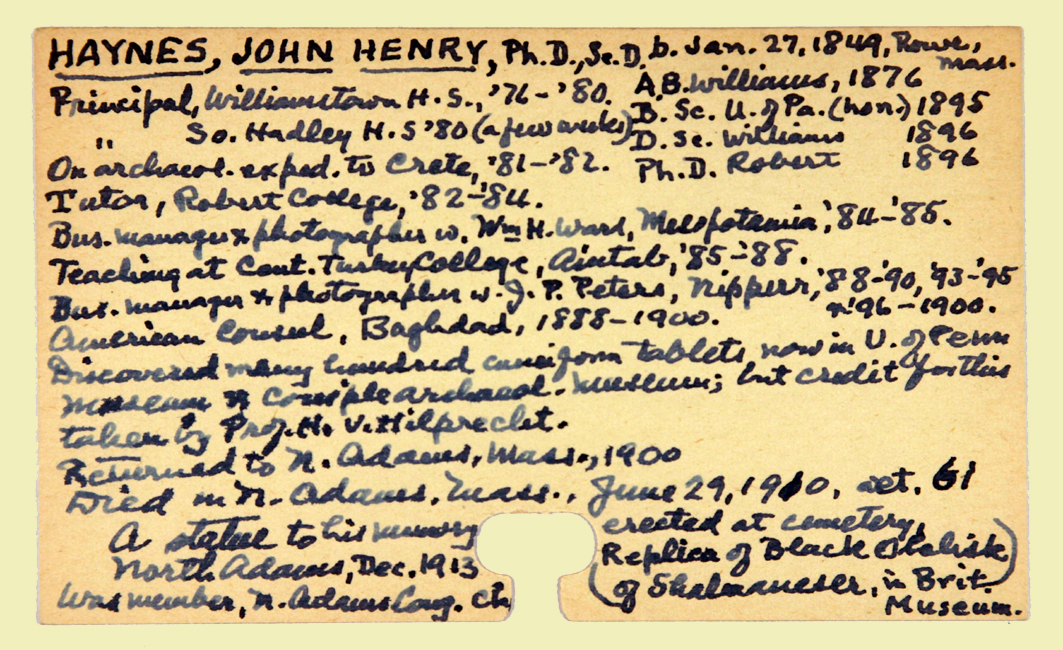 HAYNES, JOHN HENRY, Ph.D., Sc.D. b. Jan. 27, 1849, Rowe, Mass.
Principal, Williamstown H.S., '76-'80. A.B. Williams, 1876
" So. Hadley H.S '80 (a few weeks) B. Sc. U. of Pa. (hon.) 1895
D. Sc. Williams 1896
On archaeol. exped. to Crete, '81-'82. Ph.D. Robert 1896
Tutor, Robert College, '82-'84.
Bus. manager & photographer w. Wm H. Ward, Mesopotamia, '84-'85.
Teaching at Cent. Turkey College, Aintab, '85-'88.
Bus. manager & photographer w. J. P. Peters, Nippur, '88-'90, '93-'95
& '96-1900.
American Consul, Baghdad, 1888-1900.
Discovered many hundred cuneiform tablets now in U. of Penn
Museum & Constple archaeol. museum; but credit for this
taken by Prof. H. V. Hilprecht.
Returned to N. Adams, Mass., 1900
Died in N. Adams, Mass., June 29, 1910, aet. 61
A statue to his memory erected at cemetery,
North Adams, Dec. 1913 (Replica of Black Obelisk
of Shalmaneser, in Brit. Museum.)
Was member, N. Adams Cong. Ch.